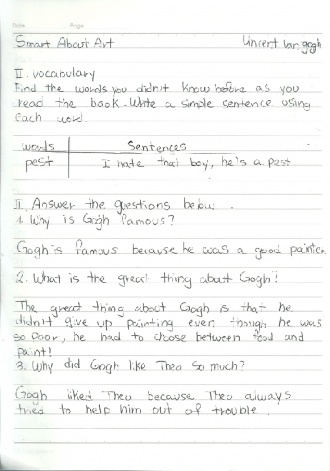 Date Page
Smart About Art Vincent Van gogh
II. vocabulary
Find the words you didn't know before as you
read the book. Write a simple sentence using
each word.
words Sentences
pest I hate that boy, he's a pest
II. Answer the questions below.
1. Why is Gogh famous?
Gogh is famous because he was a good painter
2. What is the great thing about Gogh?
The great thing about Gogh is that he
didn't give up painting even though he was
so poor, he had to choose between food and
paint!
3. Why did Gogh like Theo so much?
Gogh liked Theo because Theo always
tried to help him out of trouble.